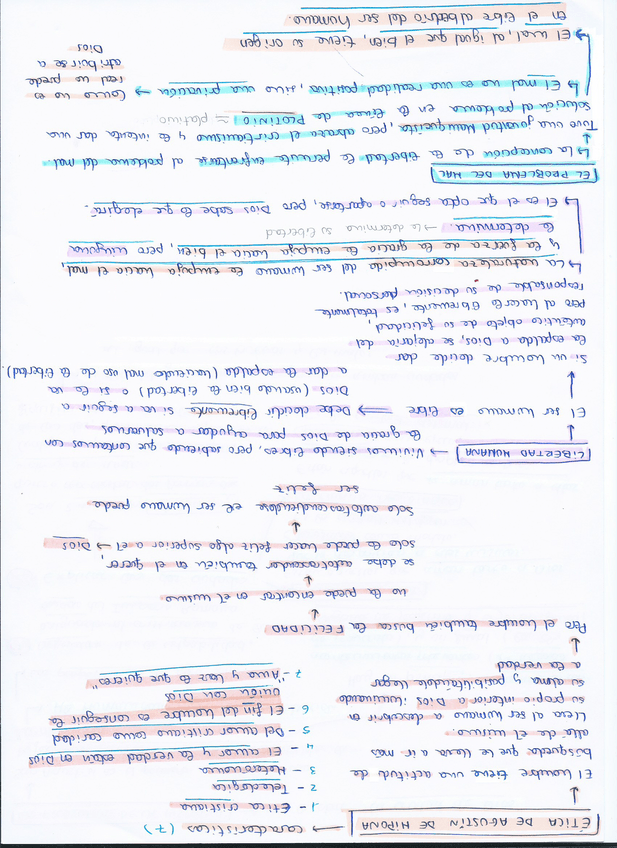 ÉTICA DE AGUSTÍN DE HIPONA → características (7)
1 - Ética cristiana
2 - Teleológica
3 - Heterónoma
4 - El amor y la verdad están en Dios
5 - Del amor cristiano como caridad
6 - El fin del hombre es conseguir la
unión con Dios
7 - "Ama y haz lo que quieras"
El hombre tiene una actitud de
búsqueda que le lleva a ir más
allá de él mismo.
Lleva al ser humano a descubrir en
su propio interior a Dios iluminando
su alma y posibilitándole llegar
a la verdad
Pero el hombre también busca la FELICIDAD
no la puede encontrar en él mismo
se debe autotrascender también en el querer,
solo le puede hacer feliz algo superior a él → Dios
solo autotrascendiéndose el ser humano puede
ser feliz
LIBERTAD HUMANA → Vivimos siendo libres, pero sabiendo que contamos con
la gracia de Dios para ayudar a salvarnos
El ser humano es libre ⇒ Debe decidir libremente si va a seguir a
Dios (usando bien la libertad) o si le va
a dar la espalda (haciendo mal uso de la libertad).
Si un hombre decide dar
la espalda a Dios, se alejaría del
auténtico objeto de su felicidad,
pero al hacerlo libremente, es totalmente
responsable de su decisión personal.
↳ La naturaleza corrompida del ser humano le empuja hacia el mal,
y la fuerza de la gracia le empuja hacia el bien, pero ninguna
le determina. → lo determina su libertad
↳ Él es el que opta seguirlo o apartarse, pero Dios sabe lo que elegirá.
EL PROBLEMA DEL MAL
↳ La concepción de la libertad le permite enfrentarse al problema del mal.
Tuvo una juventud maniquea, pero abraza el cristianismo y le intenta dar una
solución al problema en la línea de PLOTINO = platónico
↳ El mal no es una realidad positiva, sino una privación → Como no es
real no puede
atribuirse a
Dios
↳ El mal, al igual que el bien, tiene su origen
en el libre albedrío del ser humano.